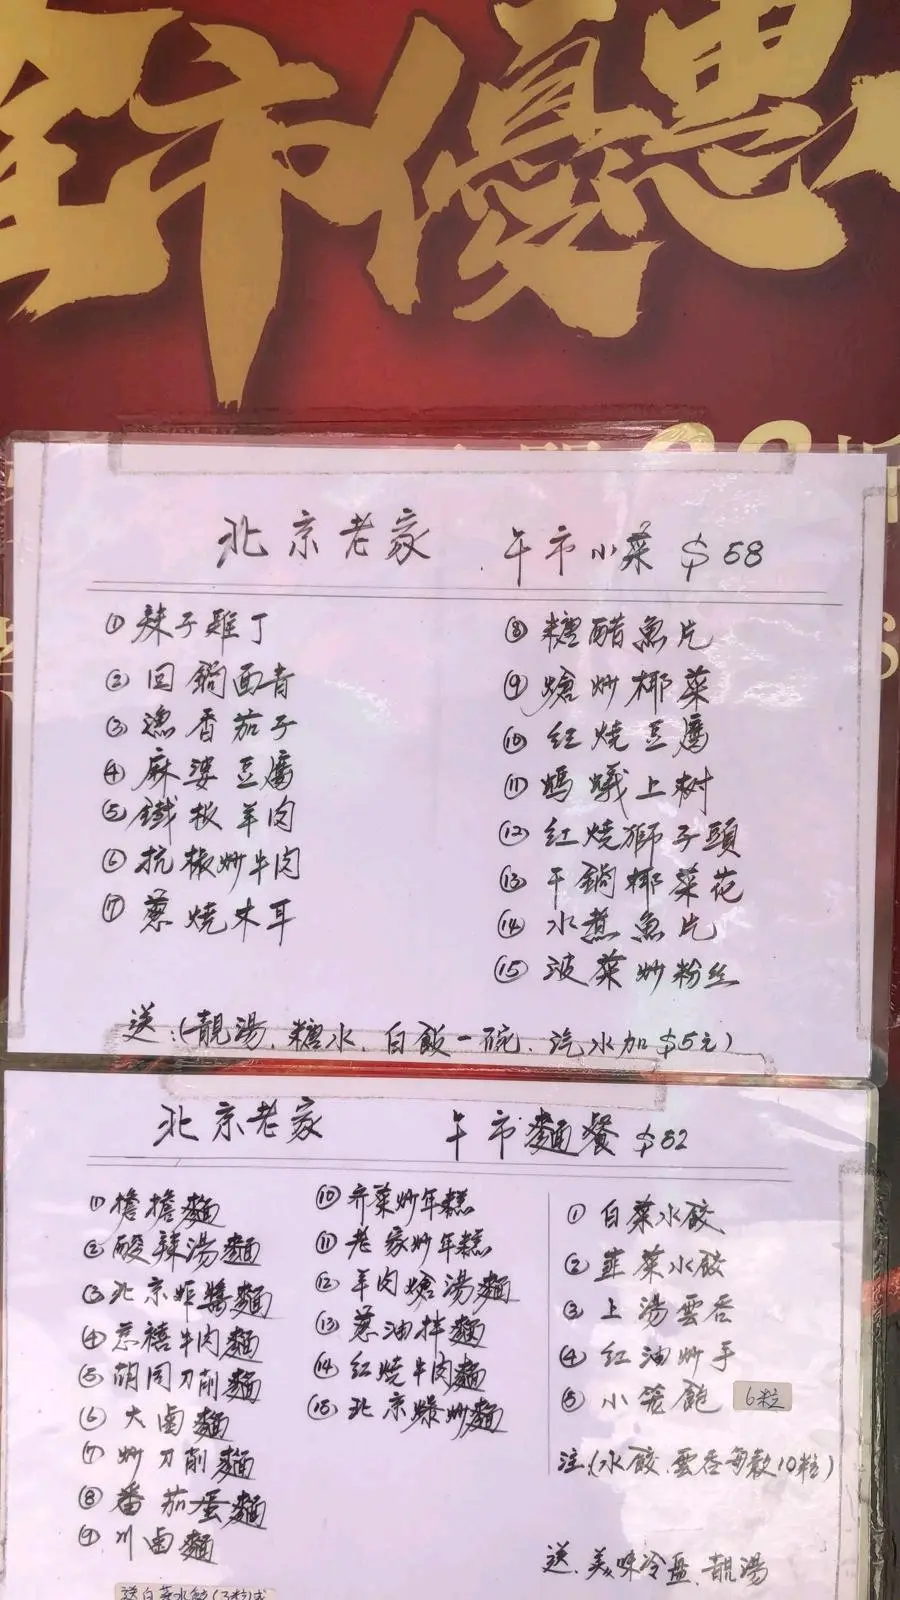 市優惠
北京老家 午市小菜 $58
① 辣子雞丁
② 回鍋面青
③ 漁香茄子
④ 麻婆豆腐
⑤ 鐵板羊肉
⑥ 杭椒炒牛肉
⑦ 蔥燒木耳
⑧ 糖醋魚片
⑨ 熗炒椰菜
⑩ 紅燒豆腐
⑪ 螞蟻上树
⑫ 紅燒獅子頭
⑬ 干鍋椰菜花
⑭ 水煮魚片
⑮ 波菜炒粉丝
送(靚湯、糖水、白飯一碗、汽水加$5元)
北京老家 午市麵餐 $52
① 擔擔麵
② 酸辣湯麵
③ 北京炸醬麵
④ 京禧牛肉麵
⑤ 胡同刀削麵
⑥ 大鹵麵
⑦ 炒刀削麵
⑧ 番茄蛋麵
⑨ 川鹵麵
⑩ 齐菜炒年糕
⑪ 老家炒年糕
⑫ 羊肉熗湯麵
⑬ 蔥油拌麵
⑭ 紅燒牛肉麵
⑮ 北京爆炒麵
① 白菜水餃
② 韭菜水餃
③ 上湯雲吞
④ 红油炒手
⑤ 小笼飽 6粒
注(水餃、雲吞每款10粒)
送、美味冷盘、靚湯
送白菜水餃(3粒)